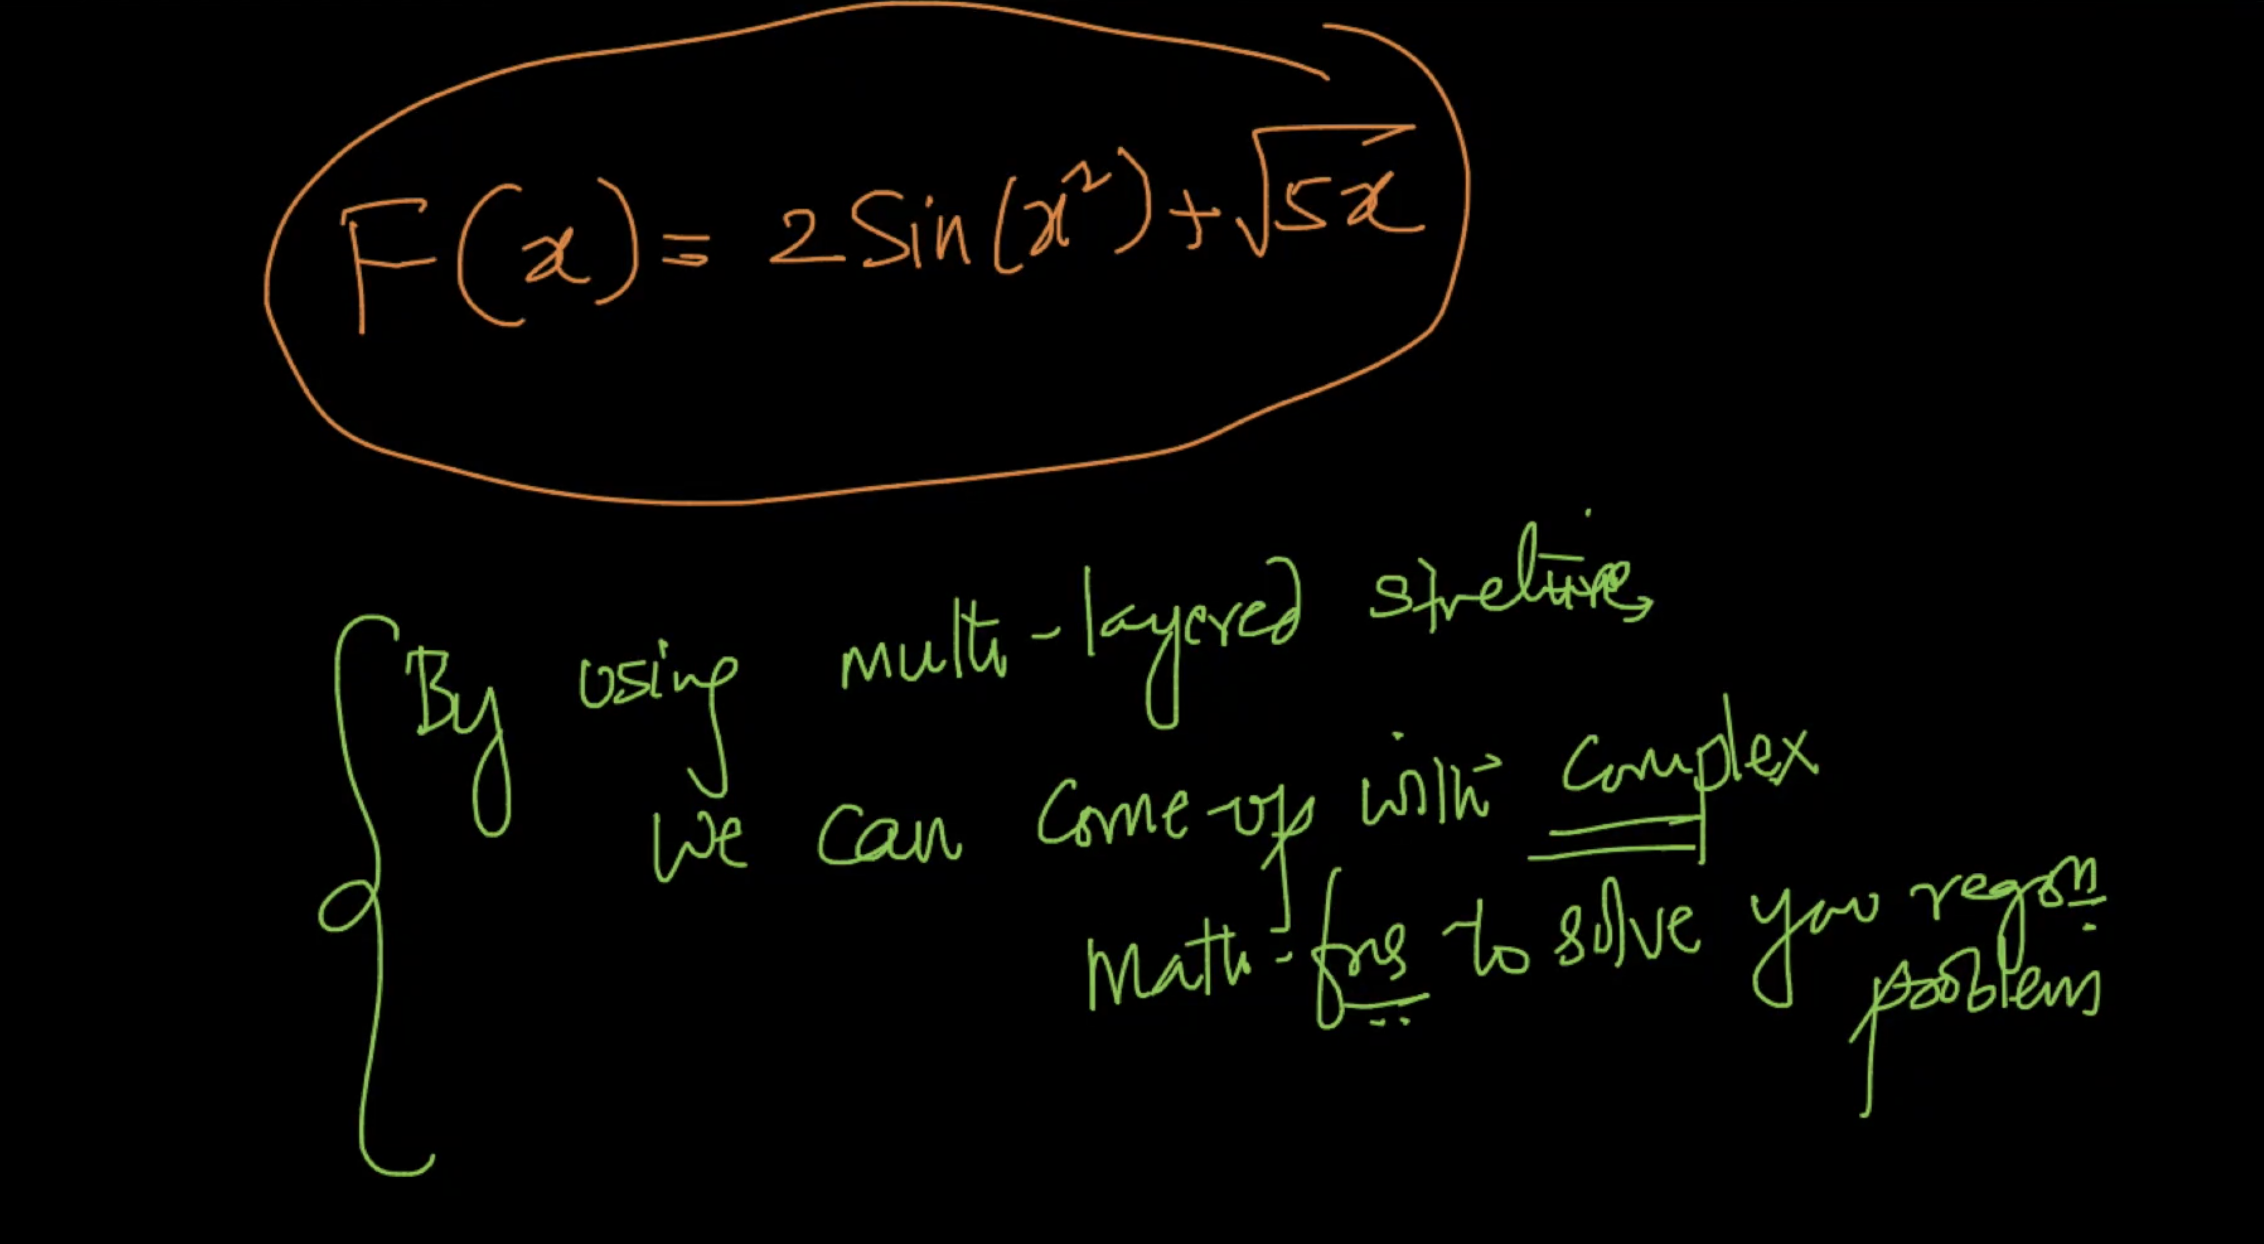 F(x) = 2 Sin(x²) + √5x
By using multi-layered structures
we can come-up with complex
math-fns to solve your regrsn
problems